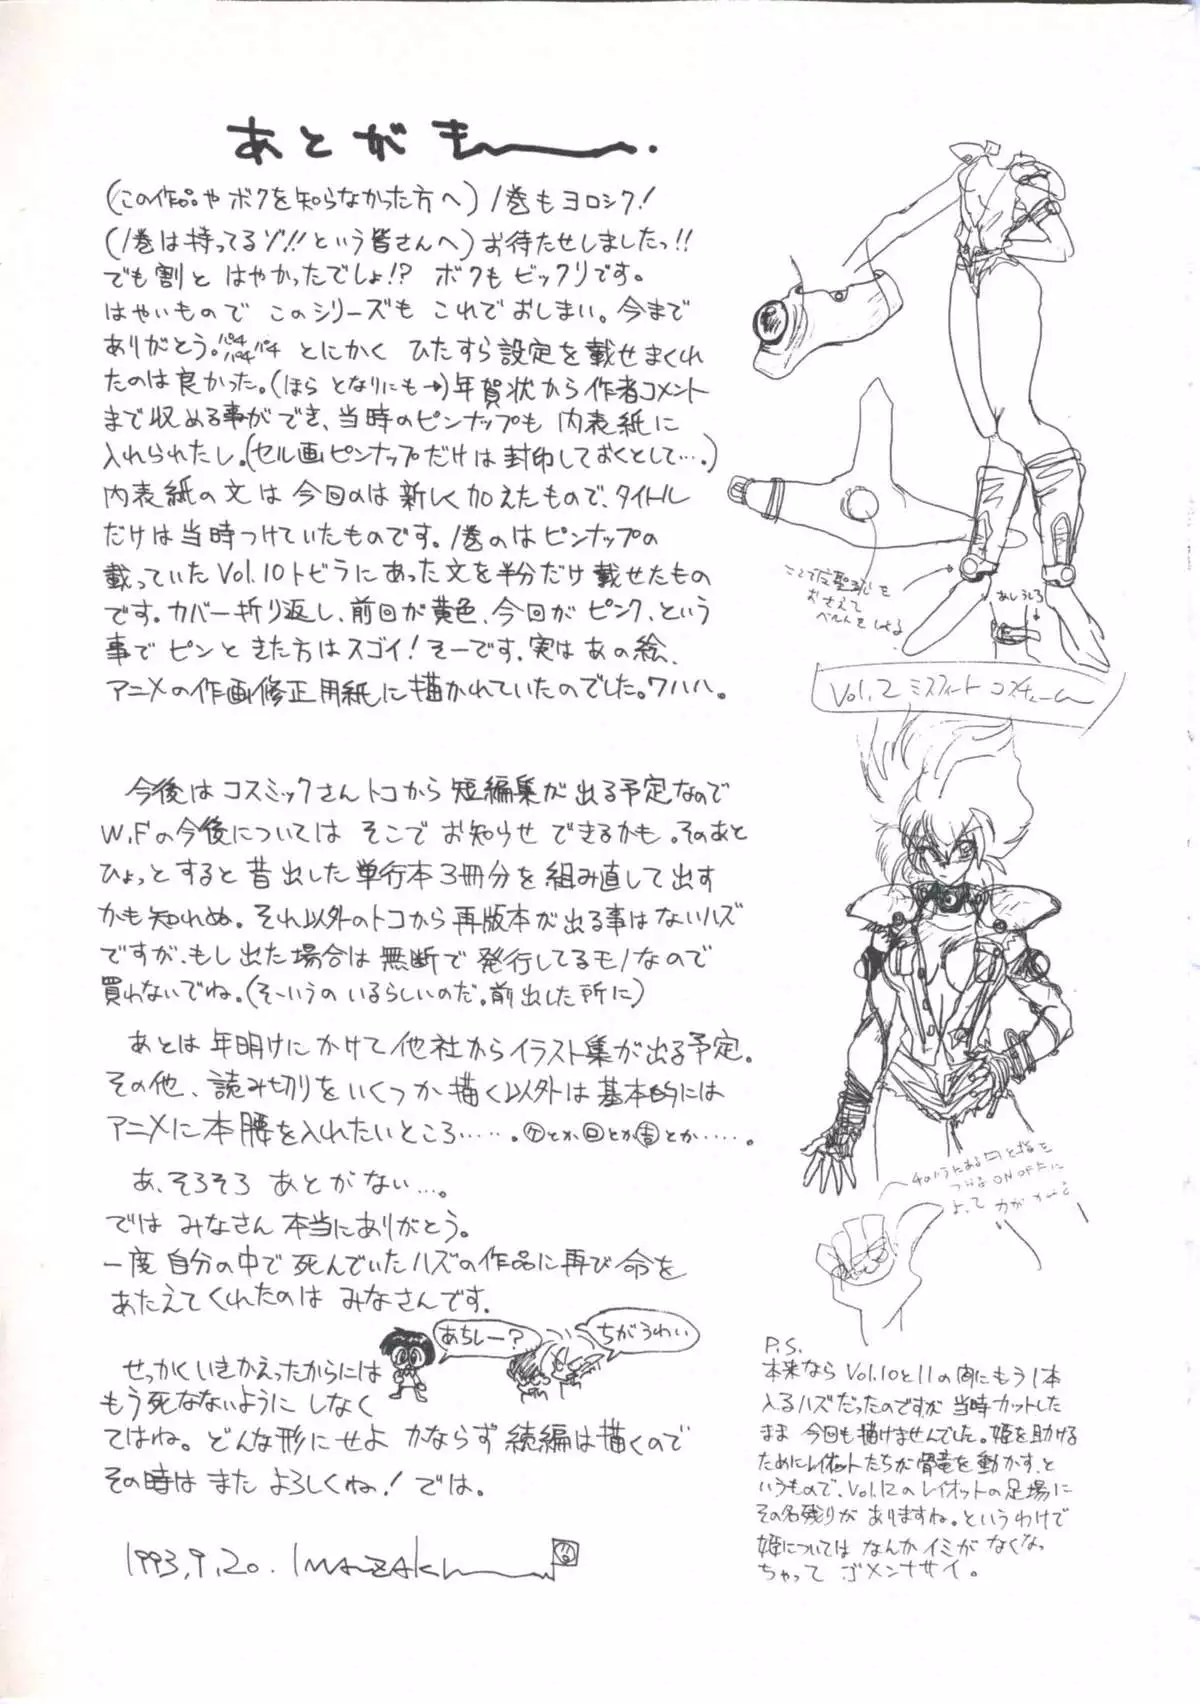 あとがきー.
(この作品やボクを知らなかった方へ)1巻もヨロシク!
(1巻は持ってるゾ!!という皆さんへ)お待たせしましたっ!!
でも割とはやかったでしょ!?ボクもビックリです。
はやいものでこのシリーズもこれでおしまい。今まで
ありがとう。パチパチパチ とにかくひたすら設定を載せまくれ
たのは良かった。(ほらとなりにも→)年賀状から作者コメント
まで収める事ができ、当時のピンナップも内表紙に
入れられたし。(セル画ピンナップだけは封印しておくとして…。)
内表紙の文は今回のは新しく加えたもので、タイトル
だけは当時つけていたものです。1巻のはピンナップの
載っていたVol.10トビラにあった文を半分だけ載せたもの
です。カバー折り返し、前回が黄色、今回がピンク、という
事でピンときた方はスゴイ!そーです、実はあの絵、
アニメの作画修正用紙に描かれていたのでした。ワハハ。
今後はコスミックさんトコから短編集が出る予定なので
W.Fの今後についてはそこでお知らせできるかも。そのあと
ひょっとすると昔出した単行本3冊分を組み直して出す
かも知れぬ。それ以外のトコから再版本が出る事はないハズ
ですが、もし出た場合は無断で発行してるモノなので
買わないでね。(そーいうのいるらしいのだ。前出した所に)
あとは年明けにかけて他社からイラスト集が出る予定。
その他、読み切りをいくつか描く以外は基本的には
アニメに本腰を入れたいところ……。㋘とか㋺とか㊐とか……。
あ、そろそろあとがない…。
ではみなさん本当にありがとう。
一度自分の中で死んでいたハズの作品に再び命を
あたえてくれたのはみなさんです。
あちしー?
ちがうわい
せっかくいきかえったからには
もう死なないようにしなく
てはね。どんな形にせよかならず続編は描くので
その時はまたよろしくね!では。
1993,9,20. IMAZAKI
ここで
おさえて
あしうしろ
Vol.2 ミスフィート コスチューム
ON OFFに
よって
P.S.
本来ならVol.10と11の間にもう1本
入るハズだったのですが当時カットした
まま今回も描けませんでした。姫を助ける
ためにレイオットたちが骨竜を動かす、と
いうもので、Vol.12のレイオットの足場に
その名残りがありますね。というわけで
姫についてはなんかイミがなくなっ
ちゃってゴメンナサイ。